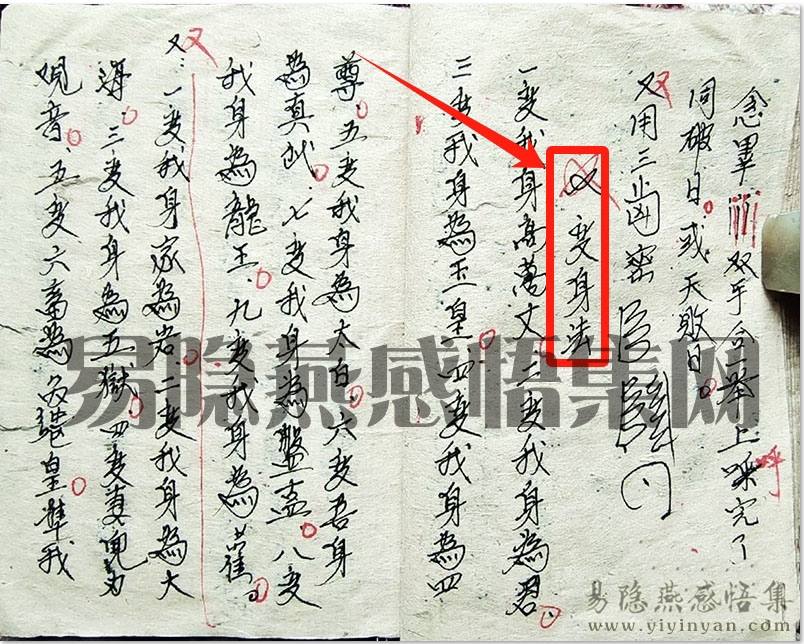 念畢 双手合举上呼完了
同破日或天敗日。
又用三 密
又变身法
一变我身高萬丈 二变我身為君。
三变我身為玉皇 四变我身為四
尊 五变我身為太白 六变吾身
為真武 七变我身為盤古 八变
我身為龍王 九变我身為
又 一变我身家為岩 二变我身為大
海 三变我身為五獄 四变
观音 五变六畜為 皇 我
易隐燕感悟集网
易隐燕感悟集
www.yiyinyan.com